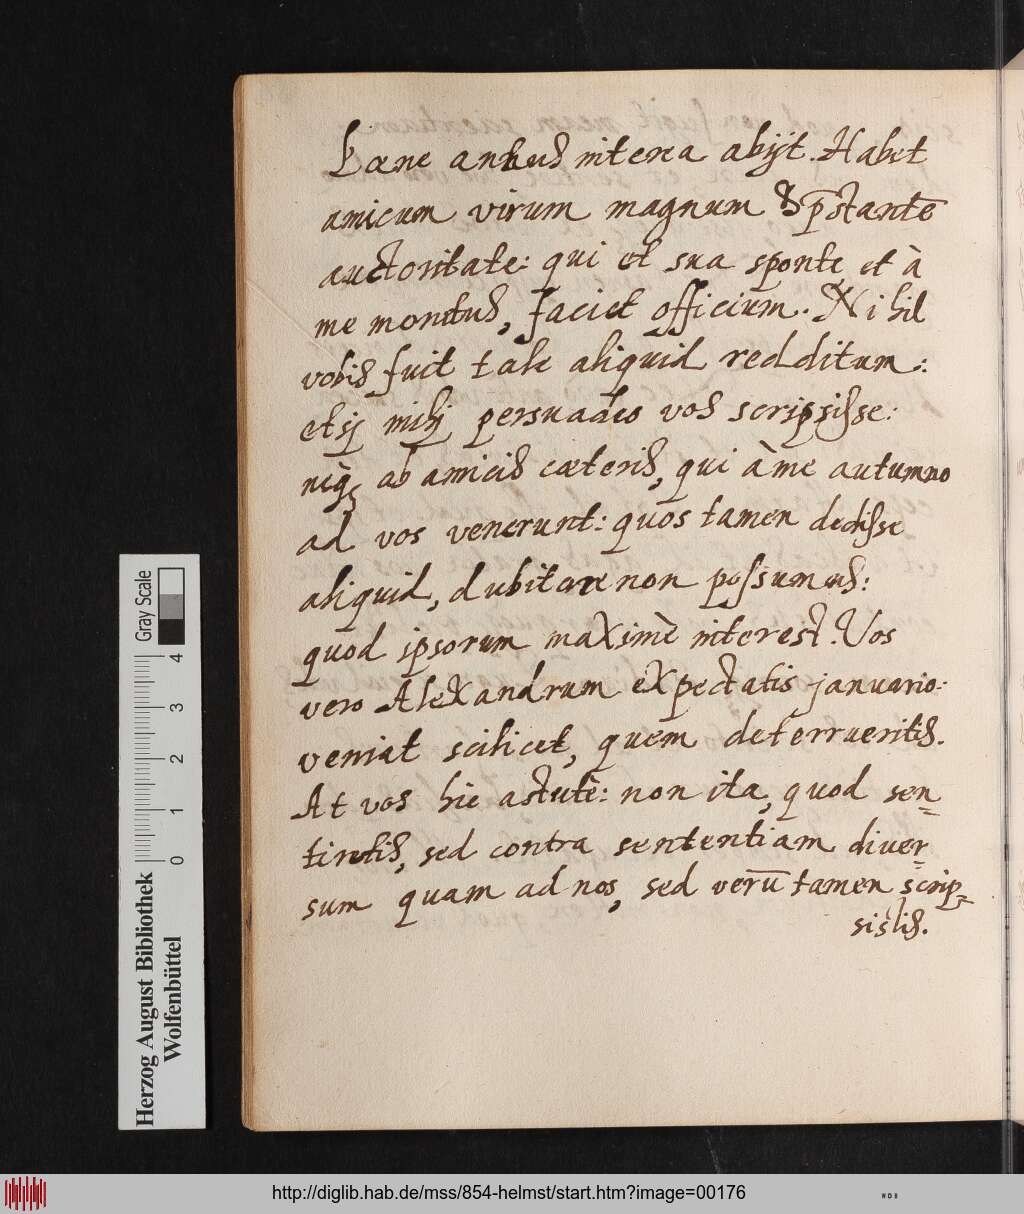 Pœne annus interea abijt. Habet
amicum virum magnum & p̄stantē
auctoritate: qui et sua sponte et à
me monitus, faciet officium. Nihil
vobis fuit tale aliquid redditum:
etsj mihj persuadeo vos scripsisse:
neq; ab amicis cæteris, qui à me autumno
ad vos venerunt: quos tamen dedisse
aliquid, dubitare non possumus:
quod ipsorum maximè interest. Vos
vero Alexandrum expectatis januario:
veniat scilicet, quem deterrueritis.
At vos hic astutè: non ita, quod sen=
tiretis, sed contra sententiam diver=
sum quam ad nos, sed verū tamen scrip=
sistis.
Herzog August Bibliothek
Wolfenbüttel
0 1 2 3 4
Gray Scale
http://diglib.hab.de/mss/854-helmst/start.htm?image=00176